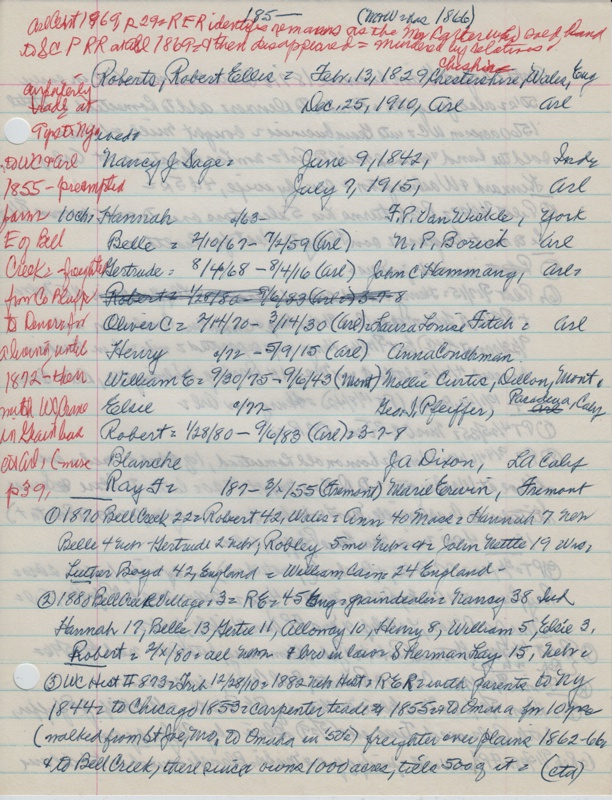 185—
(Mov W = Wash 1866)
1969 p 29 = R E R identifies remains as the Mr. Carter who sold land
to S C P RR at 1869 = & then disappeared = murdered by relatives
Cheshire
Roberts, Robert Ellis = Febr. 13, 1829, Chestershire, Wales, Eng
Dec. 25, 1910, Arl Arl
trade at
Nancy J Sage = June 9, 1842, Inde
to WC = Arl
July 7, 1915, Arl
1855 - preempted
farm Hannah 2/63 - F.P. Van Wickle, York
E of Bell
Belle = 2/10/67 - 7/2/59 (Arl) N. P. Borick = Arl
Creek = freighter
Gertrude = 8/4/68 - 8/4/16 (Arl) John C Hammang, Arl =
from Co Bluffs
Robert = 1/28/80 - 9/6/83 (Arl) = 3-7-8
to Denver for
Oliver C = 2/14/70 - 3/14/30 (Arl) = Laura Louise Fitch = Arl
a living until
Henry c/72 - 5/9/15 (Arl) Anna Conkman
1872 - then
William E = 9/30/75 - 9/6/43 (Mont) Mollie Curtis, Dillon, Mont.
with W S Crane
Elsie c/77 Geo. L Pfeiffer, Pasadena, Caly
in Grain bus
Robert = 1/28/80 - 9/6/83 (Arl) = 3-7-8
at Arl,
Blanche J A Dixon, LA Calif
p39,
Ray F = 187- 3/x/55 (Fremont) Marie Erwin, Fremont
① 1870 Bell Creek 22 = Robert 42, Wales = Ann 40 Mass = Hannah 7 Nebr
Belle 4 Nebr - Gertrude 2 Nebr, Robley 5 mo Nebr = & = John Nettle 19 Wis,
Luther Boyd 42, England = William Cain = 24 England -
② 1880 Bell Creek Village = 3 = R E = 45 Eng = graindealer = Nancy 38 Ind
Hannah 17, Belle 13, Gertie 11, Alloway 10, Henry 8, William 5, Elsie 3,
Robert = 2/x/80 = all Nebr & bro in law Sherman Gay 15, Nebr =
③ WC Hist II 873 = Trib 12/28/10 = 1882 Neb Hist = R E R = with parents to NY
1844 = to Chicago 1853 = carpenter trade & 1855 = to Omaha for 10 yrs
(walked from St Joe, Mo. to Omaha in '56) freighter over plains 1862-66
& to Bell Creek, there since owns 1000 acres, tills 500 of it = (ctd)